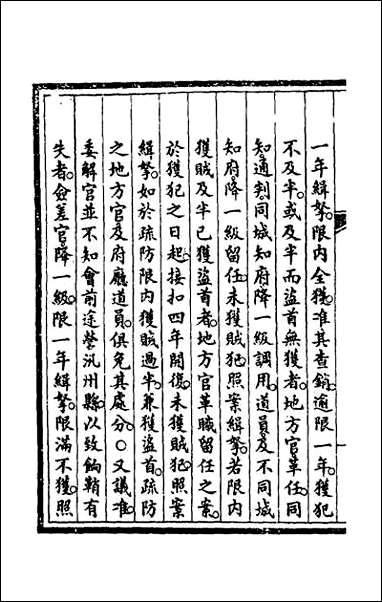 一年緝拏。限内全獲。准其查銷。逾限一年。獲犯
不及半。或及半而盜首無獲者。地方官革任。同
知通判。同城知府降一級調用。道員及不同城
知府。降一級留任。未獲賊犯。照案緝拏。若限内
獲賊及半已獲盜首者。地方官革職留任之案。
於獲犯之日起。接扣四年開復。未獲賊犯。照案
緝拏。如於疏防限内獲賊過半。兼獲盜首。疏防
之地方官及府廳道員。俱免其處分。○又議准。
委解官並不知會前途營汛州縣。以致餉鞘有
失者。僉差官。降一級。限一年緝拏。限滿不獲。照